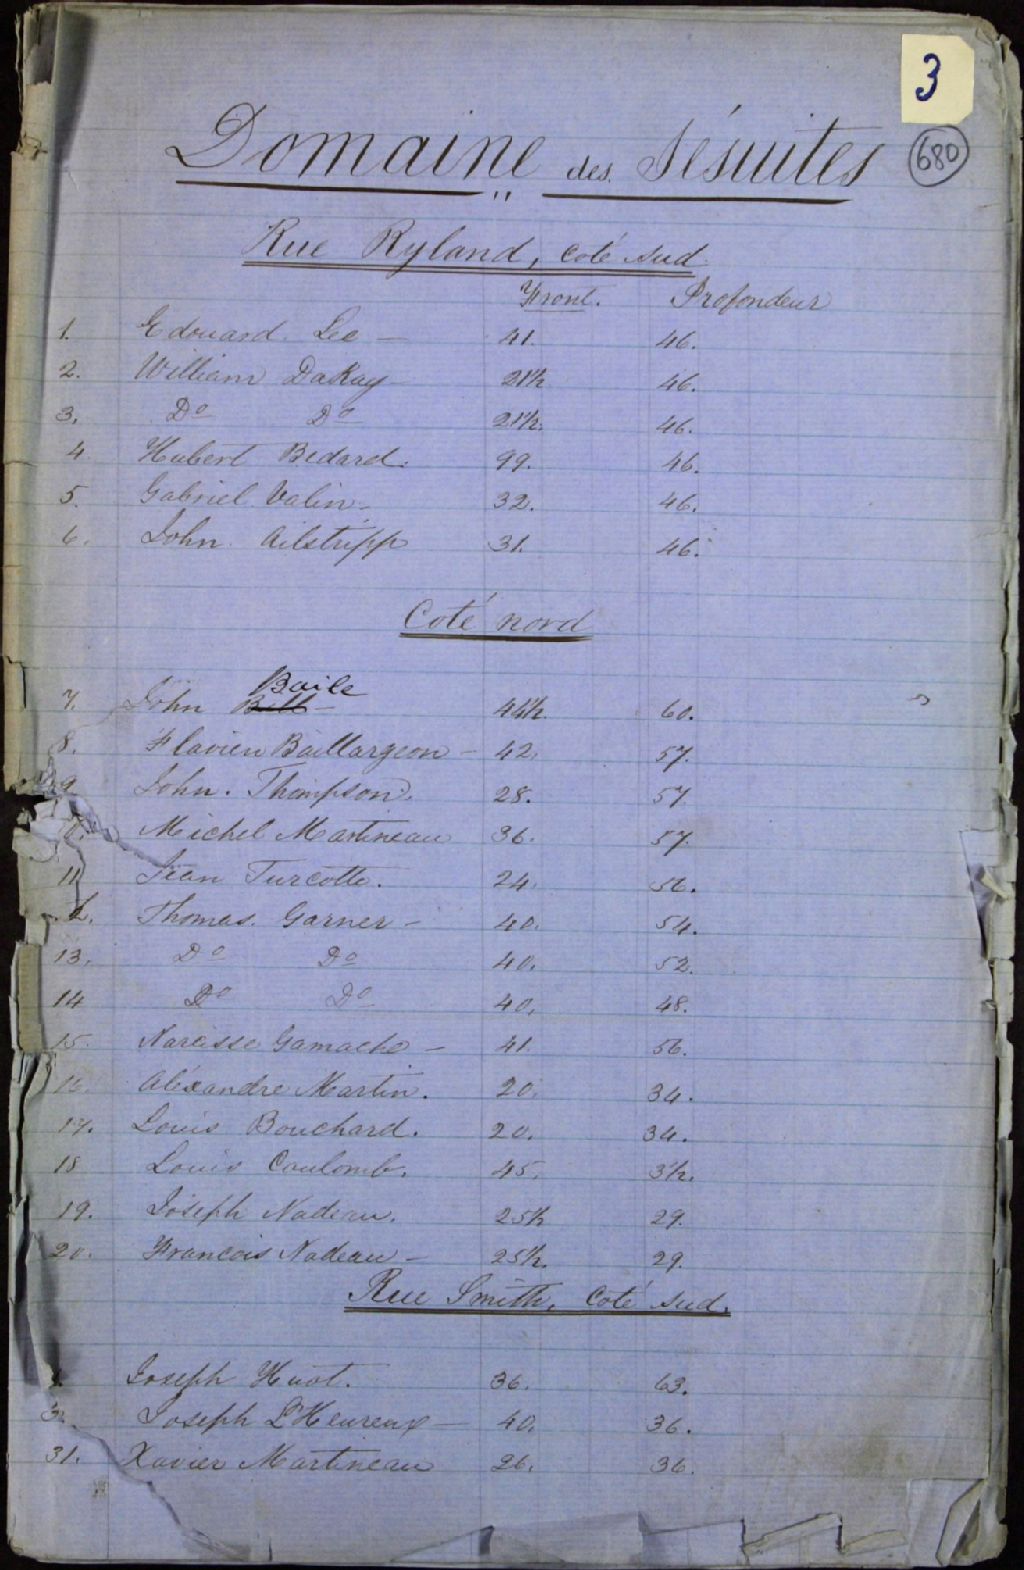 3
Domaine des Jésuites
680
Rue Ryland, coté sud.
Front. Profondeur
1. Edouard Lee — 41. 46.
2. William DaRay — 21½ 46.
3. Do Do 21½. 46.
4 Hubert Bedard. 99. 46.
5. Gabriel Valin. 32. 46.
6. John Ailstripp 31. 46.
Coté nord
Baile
7. John Bell — 44½. 60.
8. Flavien Baillargeon — 42. 57.
9 John. Thompson. 28. 57.
Michel Martineau 36. 57.
11 Jean Turcotte. 24.
2. Thomas. Garner — 40. 54.
13. Do Do 40. 52.
14 Do Do 40. 48.
15. Narcisse Gamache — 41. 56.
16 Aléxandre Martin. 20. 34.
17. Louis Bouchard. 20. 34.
18 Louis Coulomb. 45.
19. Joseph Nadeau. 25½ 29.
20. Francois Nadeau — 25½. 29.
Rue Smith, Coté sud.
Joseph Huot. 36. 63.
Joseph L'Heureux — 40. 36.
31. Xavier Martineau 26. 36.